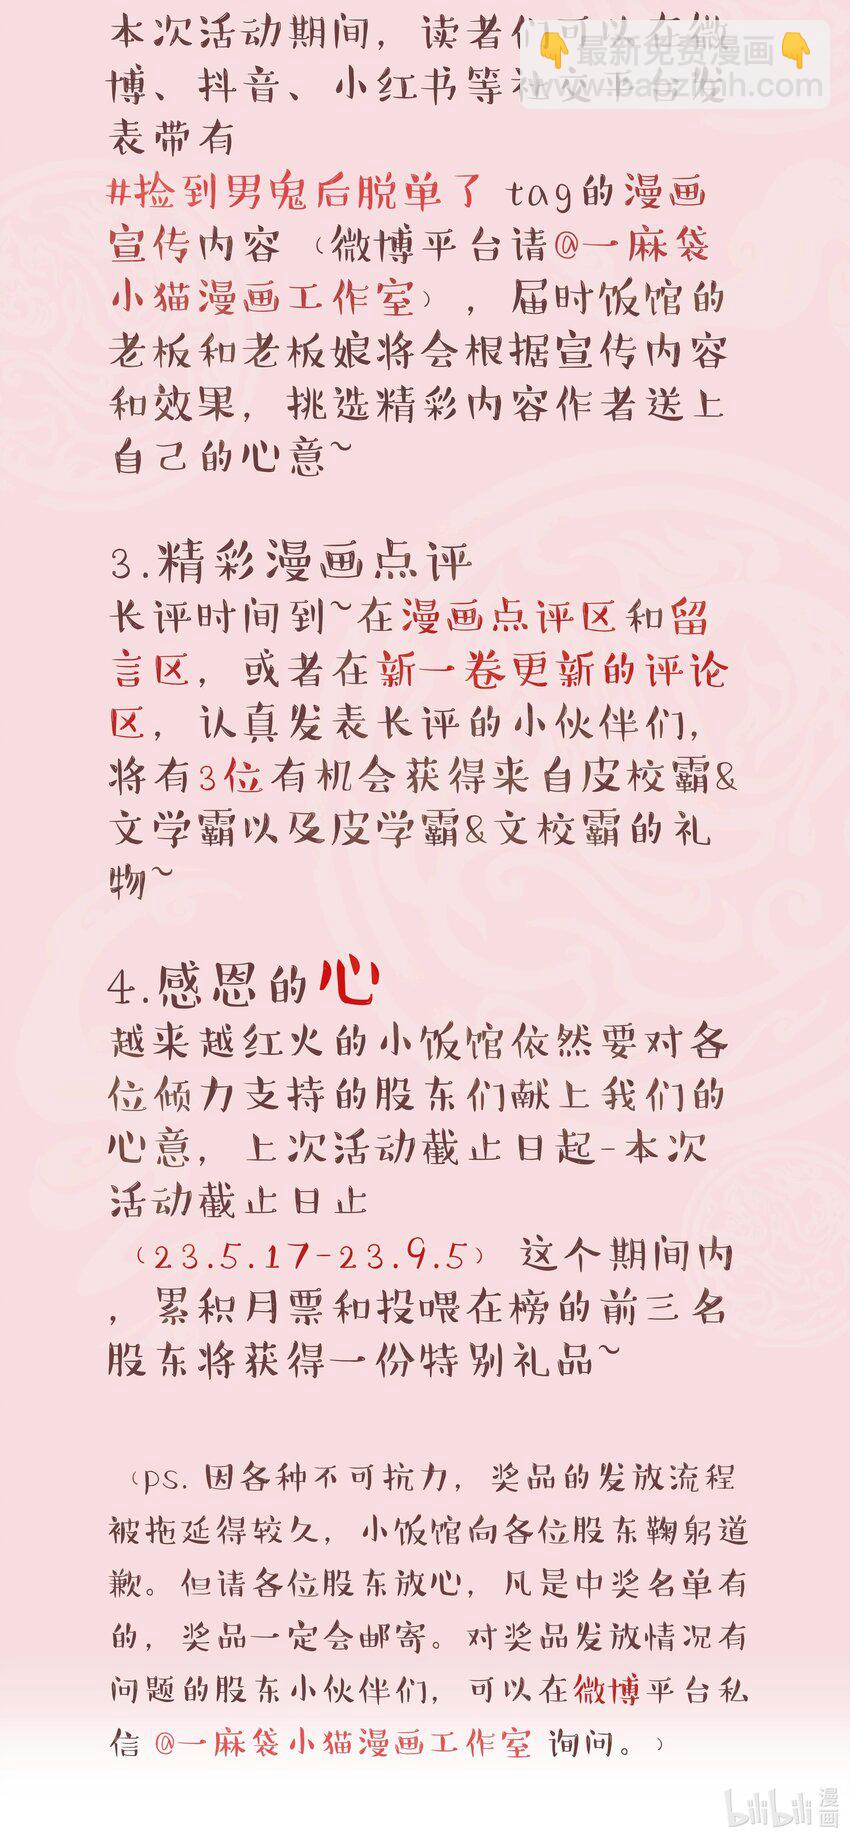 本次活动期间，读者们可以在微
博、抖音、小红书等社交平台发
表带有
#捡到男鬼后脱单了 tag的漫画
宣传内容（微博平台请@一麻袋
小猫漫画工作室），届时饭馆的
老板和老板娘将会根据宣传内容
和效果，挑选精彩内容作者送上
自己的心意~
3.精彩漫画点评
长评时间到~在漫画点评区和留
言区，或者在新一卷更新的评论
区，认真发表长评的小伙伴们，
将有3位有机会获得来自皮校霸&
文学霸以及皮学霸&文校霸的礼
物~
4.感恩的心
越来越红火的小饭馆依然要对各
位倾力支持的股东们献上我们的
心意，上次活动截止日起-本次
活动截止日止
（23.5.17-23.9.5）这个期间内
，累积月票和投喂在榜的前三名
股东将获得一份特别礼品~
（ps.因各种不可抗力，奖品的发放流程
被拖延得较久，小饭馆向各位股东鞠躬道
歉。但请各位股东放心，凡是中奖名单有
的，奖品一定会邮寄。对奖品发放情况有
问题的股东小伙伴们，可以在微博平台私
信 @一麻袋小猫漫画工作室 询问。）
👇最新免费漫画👇
www.baozimh.com
bilibili 漫画